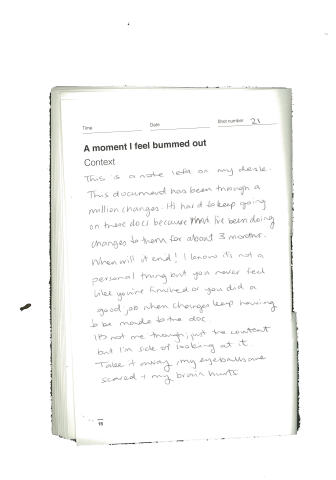 Time Date Shot number 21
A moment I feel bummed out
Context
This is a note left on my desk.
This document has been through a
million changes. It's hard to keep going
on these docs because I've been doing
changes to them for about 3 months.
When will it end! I know it's not a
personal thing but you never feel
like you're finished or you did a
good job when changes keep having
to be made to the doc
It's not me though, just the content
but I'm sick of looking at it
Take it away, my eyeballs are
scared + my brain hurts